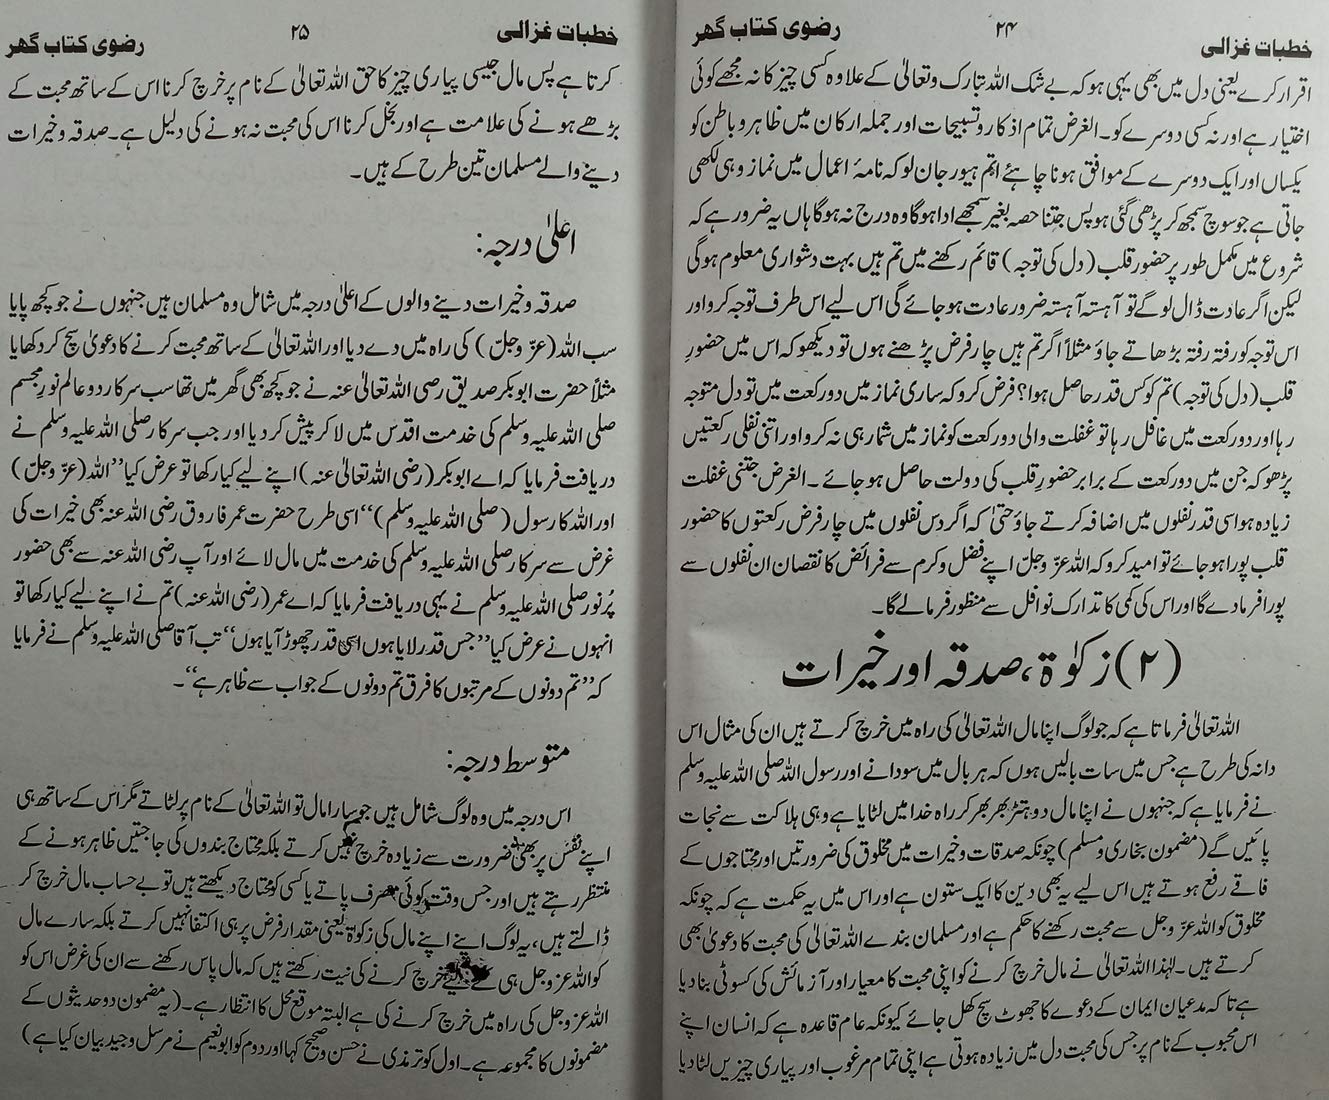 خطبات غزالی ۲۴ رضوی کتاب گھر
اقرار کرے یعنی دل میں بھی یہی ہو کہ بے شک اللہ تبارک وتعالیٰ کے علاوہ کسی چیز کا نہ مجھے کوئی
اختیار ہے اور نہ کسی دوسرے کو۔ الغرض تمام اذکار و تسبیحات اور جملہ ارکان میں ظاہر و باطن کو
یکساں اور ایک دوسرے کے موافق ہونا چاہئے اور جان لو کہ نامۂ اعمال میں نماز وہی لکھی
جاتی ہے جو سوچ سمجھ کر پڑھی گئی ہو پس جتنا حصہ بغیر سمجھے ادا ہوگا وہ درج نہ ہوگا ہاں یہ ضرور ہے کہ
شروع میں مکمل طور پر حضور قلب (دل کی توجہ) قائم رکھنے میں تم ہیں بہت دشواری معلوم ہوگی
لیکن اگر عادت ڈال لو گے تو آہستہ آہستہ ضرور عادت ہو جائے گی اس لیے اس طرف توجہ کرو اور
اس توجہ کو رفتہ رفتہ بڑھاتے جاؤ مثلاً اگر تم ہیں چار فرض پڑھنے ہوں تو دیکھو کہ اس میں حضورِ
قلب (دل کی توجہ) تم کو کس قدر حاصل ہوا؟ فرض کرو کہ ساری نماز میں دو رکعت میں تو دل متوجہ
رہا اور دو رکعت میں غافل رہا تو غفلت والی دو رکعت کو نماز میں شمار ہی نہ کرو اور اتنی نفلی رکعتیں
پڑھو کہ جن میں دو رکعت کے برابر حضورِ قلب کی دولت حاصل ہو جائے۔ الغرض جتنی غفلت
زیادہ ہو اسی قدر نفلوں میں اضافہ کرتے جاؤ حتیٰ کہ اگر دس نفلوں میں چار فرض رکعتوں کا حضور
قلب پورا ہو جائے تو امید کرو کہ اللہ عزّ وجلّ اپنے فضل و کرم سے فرائض کا نقصان ان نفلوں سے
پورا فرما دے گا اور اس کی کمی کا تدارک نوافل سے منظور فرما لے گا۔
(۲) زکوٰۃ، صدقہ اور خیرات
اللہ تعالیٰ فرماتا ہے کہ جو لوگ اپنا مال اللہ تعالیٰ کی راہ میں خرچ کرتے ہیں ان کی مثال اس
دانہ کی طرح ہے جس میں سات بالیں ہوں کہ ہر بال میں سو دانے اور رسول اللہ صلی اللہ علیہ وسلم
نے فرمایا ہے کہ جنہوں نے اپنا مال دو ہتڑ بھر بھر کر راہ خدا میں لٹایا ہے وہی ہلاکت سے نجات
پائیں گے (مضمون بخاری و مسلم) چونکہ صدقات و خیرات میں مخلوق کی ضرورتیں اور محتاجوں کے
فاقے رفع ہوتے ہیں اس لیے یہ بھی دین کا ایک ستون ہے اور اس میں یہ حکمت ہے کہ چونکہ
مخلوق کو اللہ عزّ وجل سے محبت رکھنے کا حکم ہے اور مسلمان بندے اللہ تعالیٰ کی محبت کا دعویٰ بھی
کرتے ہیں۔ لہٰذا اللہ تعالیٰ نے مال خرچ کرنے کو اپنی محبت کا معیار اور آزمائش کی کسوٹی بنا دیا
ہے تا کہ مدعیان ایمان کے دعوے کا جھوٹ سچ کھل جائے کیونکہ عام قاعدہ ہے کہ انسان اپنے
اس محبوب کے نام پر جس کی محبت دل میں زیادہ ہوتی ہے اپنی تمام مرغوب اور پیاری چیزیں لٹا دیا
خطبات غزالی ۲۵ رضوی کتاب گھر
کرتا ہے پس مال جیسی پیاری چیز کا حق اللہ تعالیٰ کے نام پر خرچ کرنا اس کے ساتھ محبت کے
بڑھے ہونے کی علامت ہے اور بخل کرنا اس کی محبت نہ ہونے کی دلیل ہے۔ صدقہ و خیرات
دینے والے مسلمان تین طرح کے ہیں۔
اعلیٰ درجہ:
صدقہ و خیرات دینے والوں کے اعلیٰ درجہ میں شامل وہ مسلمان ہیں جنہوں نے جو کچھ پایا
سب اللہ (عزّ وجلّ) کی راہ میں دے دیا اور اللہ تعالیٰ کے ساتھ محبت کرنے کا دعویٰ سچ کر دکھایا
مثلاً حضرت ابوبکر صدیق رضی اللہ تعالیٰ عنہ نے جو کچھ بھی گھر میں تھا سب سرکار دو عالم نورِ مجسم
صلی اللہ علیہ وسلم کی خدمت اقدس میں لا کر پیش کر دیا اور جب سرکار صلی اللہ علیہ وسلم نے
دریافت فرمایا کہ اے ابوبکر (رضی اللہ تعالیٰ عنہ) اپنے لیے کیا رکھا تو عرض کیا ”اللہ (عزّ وجلّ)
اور اللہ کا رسول (صلی اللہ علیہ وسلم)“ اسی طرح حضرت عمر فاروق رضی اللہ عنہ بھی خیرات کی
غرض سے سرکار صلی اللہ علیہ وسلم کی خدمت میں مال لائے اور آپ رضی اللہ عنہ سے بھی حضور
پُر نور صلی اللہ علیہ وسلم نے یہی دریافت فرمایا کہ اے عمر (رضی اللہ عنہ) تم نے اپنے لیے کیا رکھا تو
انہوں نے عرض کیا ”جس قدر لایا ہوں اسی قدر چھوڑ آیا ہوں“ تب آقا صلی اللہ علیہ وسلم نے فرمایا
کہ ”تم دونوں کے مرتبوں کا فرق تم دونوں کے جواب سے ظاہر ہے“۔
متوسط درجہ:
اس درجہ میں وہ لوگ شامل ہیں جو سارا مال تو اللہ تعالیٰ کے نام پر لٹاتے مگر اس کے ساتھ ہی
اپنے نفس پر بھی ضرورت سے زیادہ خرچ نہیں کرتے بلکہ محتاج بندوں کی حاجتیں ظاہر ہونے کے
منتظر رہتے ہیں اور جس وقت کوئی مصرف پاتے یا کسی کو محتاج دیکھتے ہیں تو بے حساب مال خرچ کر
ڈالتے ہیں، یہ لوگ اپنے اپنے مال کی زکوٰۃ یعنی مقدار فرض پر ہی اکتفا نہیں کرتے بلکہ سارے مال
کو اللہ عزوجل ہی کے لیے خرچ کرنے کی نیت رکھتے ہیں کہ مال پاس رکھنے سے ان کی غرض اس کو
اللہ عزوجل کی راہ میں خرچ کرنے کی ہے البتہ موقع محل کا انتظار ہے۔ (یہ مضمون دو حدیثوں کے
مضمونوں کا مجموعہ ہے۔ اول کو ترمذی نے حسن و صحیح کہا اور دوم کو ابونعیم نے مرسل وجید بیان کیا ہے)